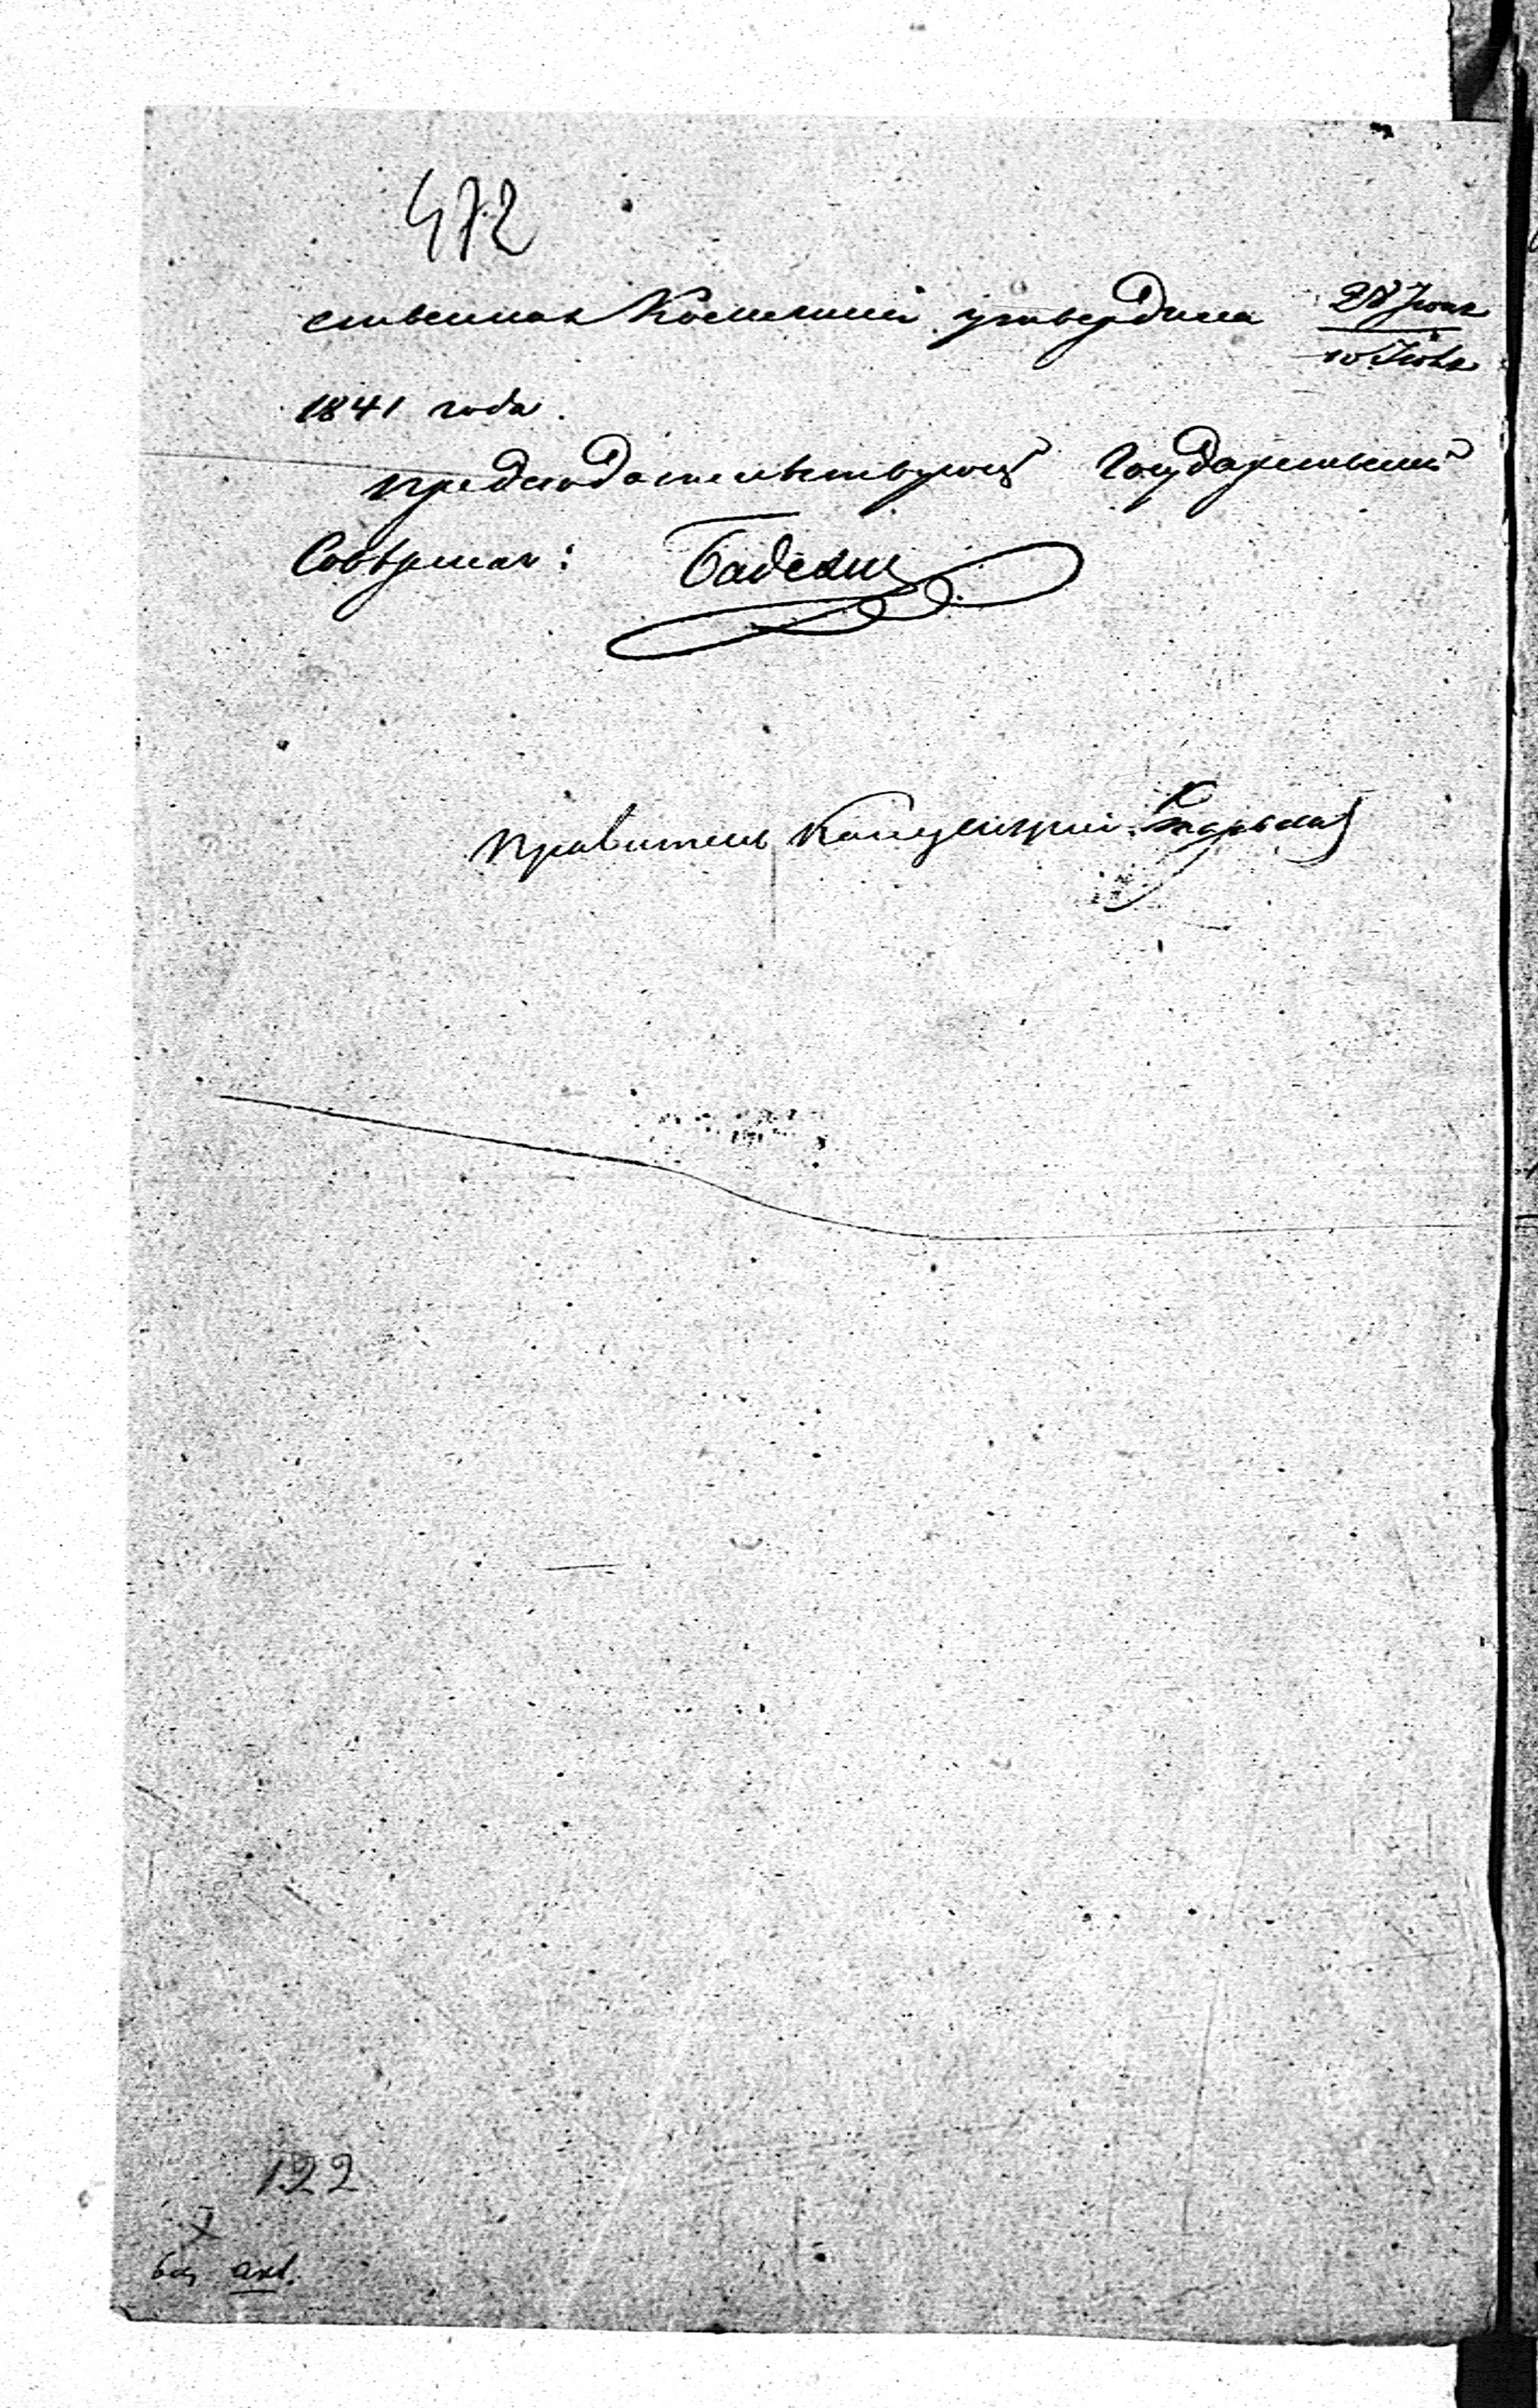 472
ственная Коммисия утвердила 28 Июня
10 Июля
1841 года.
Председательствующій Государственный
Совѣтникъ:
Правитель Канцеляріи
122